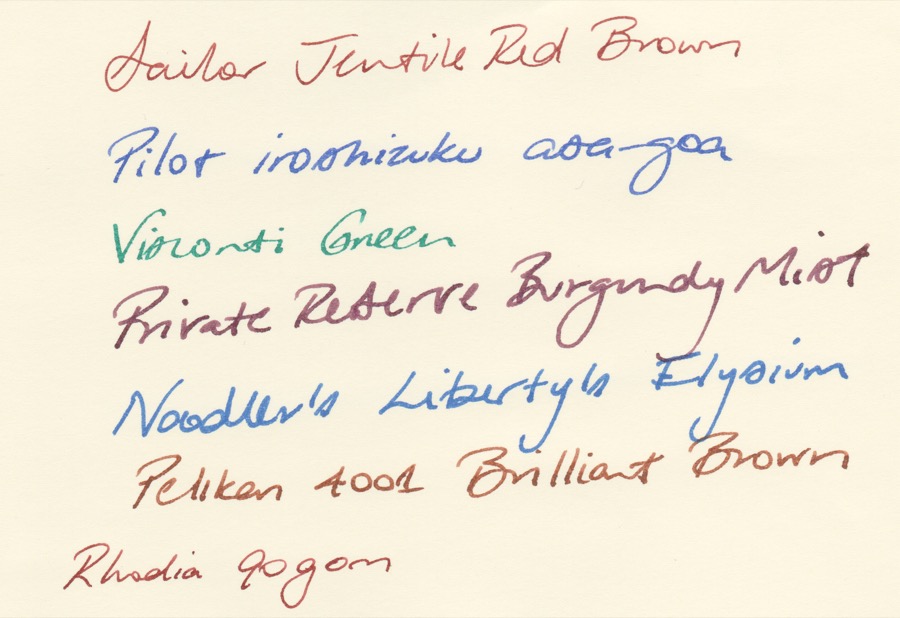 Sailor Jentile Red Brown
Pilot iroshizuku asa-gao
Visconti Green
Private Reserve Burgundy Mist
Noodler's Liberty's Elysium
Pelikan 4001 Brilliant Brown
Rhodia 90gsm